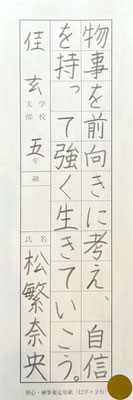 物事を前向きに考え、自信
を持って強く生きていこう。
佳玄 学校支部 五年級 氏名 松繁奈央
初心・硬筆規定用紙(12字×2行)